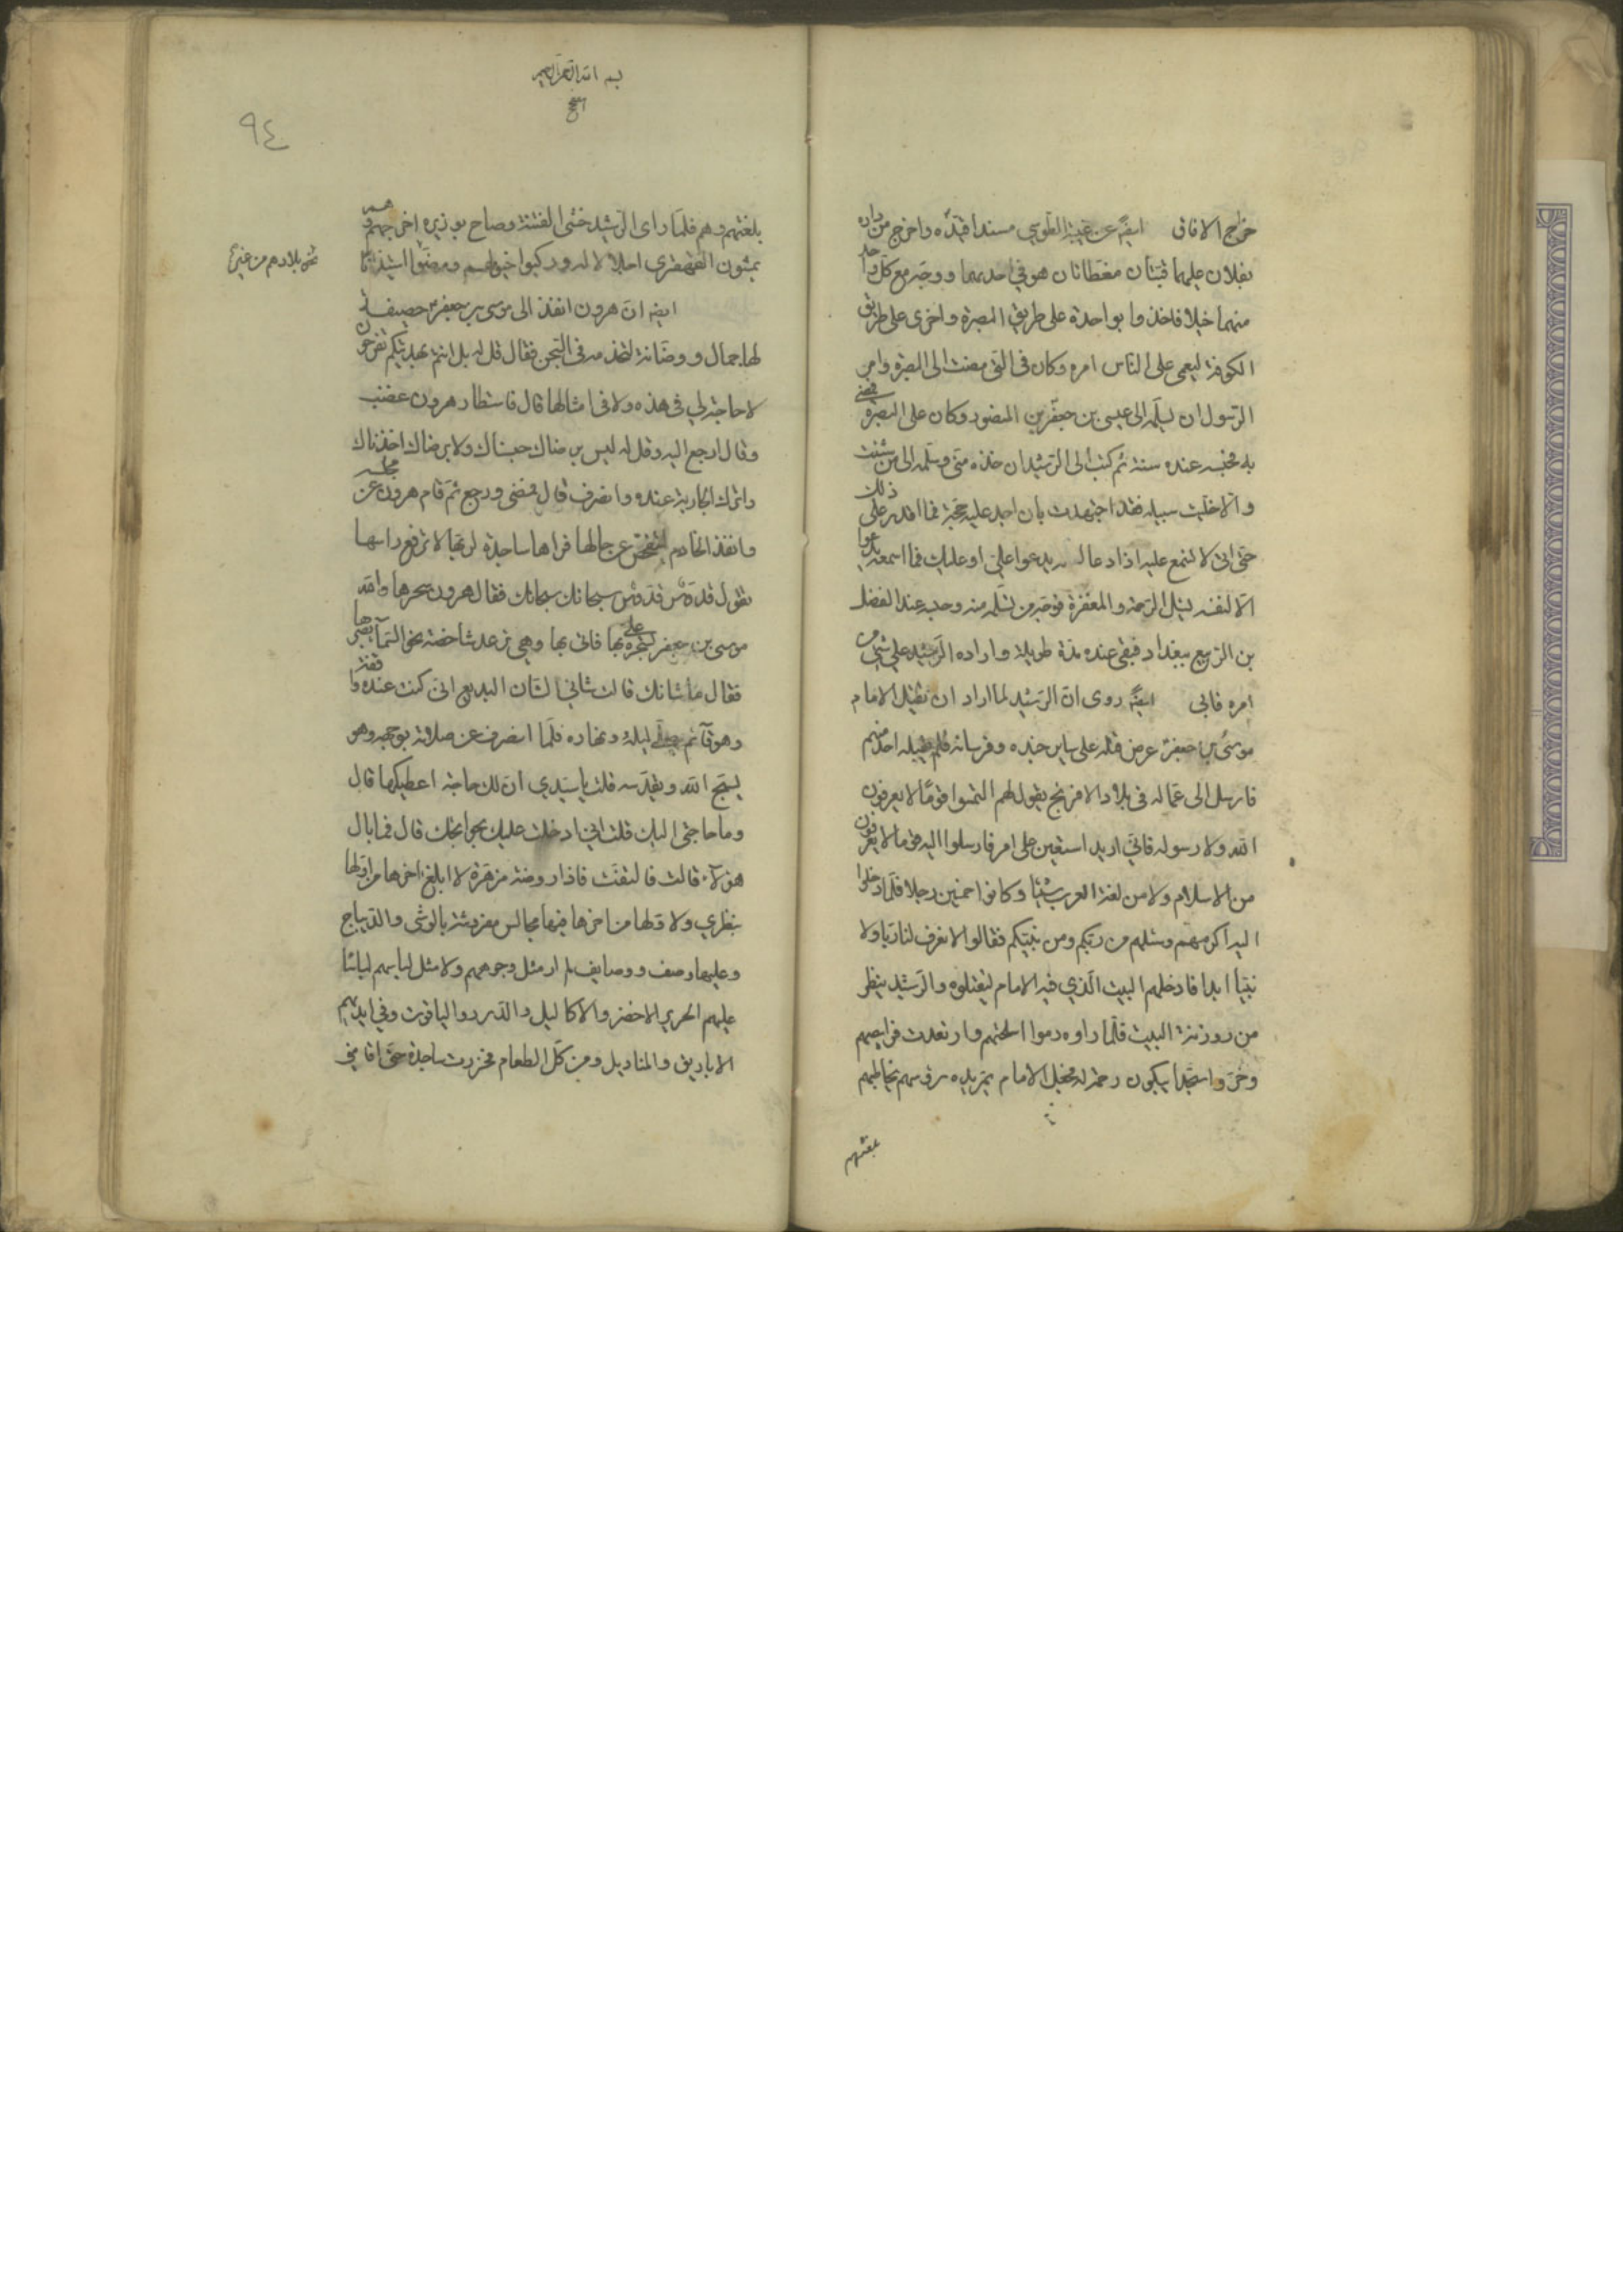 خراج الافاق ايضا عن غيبة الطوسي مسندا قيده واخرج من داره
بغلان عليهما قبتان مغطاتان هو في احديهما ووجه مع كل واحد
منهما خيلا فاخذوا بواحدة على طريق البصرة واخرى على طريق
الكوفة ليعمى على الناس امره وكان في التي مضت الى البصرة وامر
الرسول ان يسلمه الى عيسى بن جعفر بن المنصور وكان على البصرة فمضى
به فحبسه عنده سنة ثم كتب الى الرشيد ان خذه مني وسلمه الى من شئت
والا خليت سبيله فقد اجتهدت بان اجد عليه حجة فما اقدر على ذلك
حتى اني لا تسمع عليه اذا دعا لعله يدعوا علي او عليك فما اسمعه يدعوا
الا لنفسه يسئل الرحمة والمغفرة فوجه من تسلمه منه وحبسه عند الفضل
بن الربيع ببغداد فبقي عنده مدة طويلة واراده الرشيد على شيء من
امره فابى ايضا روى ان الرشيد لما اراد ان يقتل الامام
موسى بن جعفر عرض قتله على ساير جنده وفرسانه فلم يقبله احد منهم
فارسل الى عماله في بلاد الافرنج يقول لهم التمسوا قوما لا يعرفون
الله ولا رسوله فاني اريد استعين على امر فارسلوا اليه قوما لا يعرفون
من الاسلام ولا من لغة العرب شيئا وكانوا خمسين رجلا فلما دخلوا
اليه اكرمهم وسئلهم من ربكم ومن نبيكم فقالوا لا نعرف لنا ربا ولا
نبيا ابدا فادخلهم البيت الذي فيه الامام ليقتلوه والرشيد ينظر
من روزنة البيت فلما راوه رموا اسلحتهم وارتعدت فرايصهم
وخروا سجدا يبكون رحمة له فجعل الامام يمر يده على رؤسهم يخاطبهم
بلغتهم
بسم الله الرحمن الرحيم
٩٤
بلغتهم وهم فلما راى الرشيد خشى الفتنة وصاح بوزيره اخرجهم وهم
يمشون القهقرى اجلالا له وركبوا خيولهم ومضوا
نحو بلادهم من غير
ايضا ان هرون انفذ الى موسى بن جعفر حصيفة
لها جمال ووضانة لتخدمه في السجن فقال قل له بل انتم بهديتكم تفرحون
لا حاجة لي في هذه ولا في امثالها قال فاستطار هرون غضب
وقال ارجع اليه وقل له ليس برضاك حبسناك ولا برضاك اخذناك
واترك الجارية عنده وانصرف قال فمضى ورجع ثم قام هرون عن مجلسه
وانفذ الخادم ليتفحص عن حالها فراها ساجدة لربها لا ترفع راسها
تقول قدوس قدوس سبحانك سبحانك فقال هرون سحرها والله
موسى بن جعفر علي بها فاتي بها وهي ترعد شاخصة نحو السماء بصرها
فقال ما شانك قالت شاني الشان البديع اني كنت عنده واقفة
وهو قائم يصلي ليله ونهاره فلما انصرف عن صلاته بوجهه وهو
يسبح الله ويقدسه قلت يا سيدي ان لك حاجة اعطيكها قال
وما حاجتي اليك قلت اني ادخلت عليك بحوائجك قال فما بال
هؤلاء قالت فالتفت فاذا روضة مزهرة لا ابلغ اخرها من اولها
بنظري ولا اولها من اخرها فيها مجالس مفروشة بالوشى والديباج
وعليها وصف ووصايف لم ار مثل وجوههم ولا مثل لباسهم لباسا
عليهم الحرير الاخضر والاكاليل والدر والياقوت وفي ايديهم
الاباريق والمناديل ومن كل الطعام فخررت ساجدة حتى اقامني